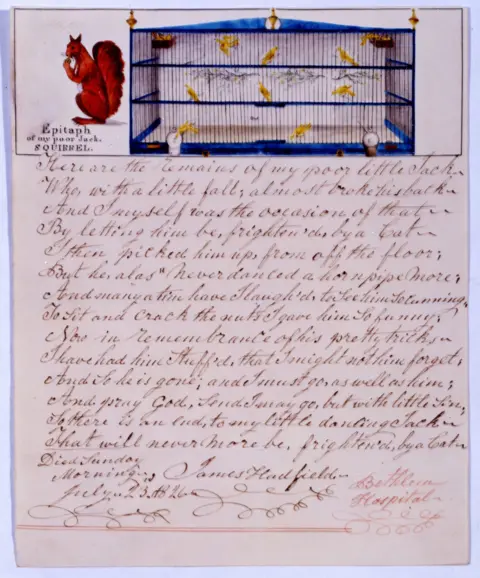 Epitaph
of my poor Jack.
SQUIRREL.
Here are the Remains of my poor little Jack~
Who, with a little fall; almost broke his back~
And I myself was the occasion of that~
By letting him be, frighten'd, by a Cat~
I then picked him up, from off the floor;
But he, alas" Never danced a horn pipe more;
And many a time have I laugh'd, to see him so cunning,
To Sit and Crack the nuts I gave him So funny;
Now in remembrance of his pretty tricks~
I have had him Stuff'd, that I might not him forget,
And So he is gone; and I must go, as well as him;
And pray God, Send I may go, but with little Sin,
So there is an end, to my little dancing Jack~
That will never more be, frighten'd, by a Cat~
Died Sunday
Morning, James Hadfield~
July. 23. 1826
Bethlem
Hospital~